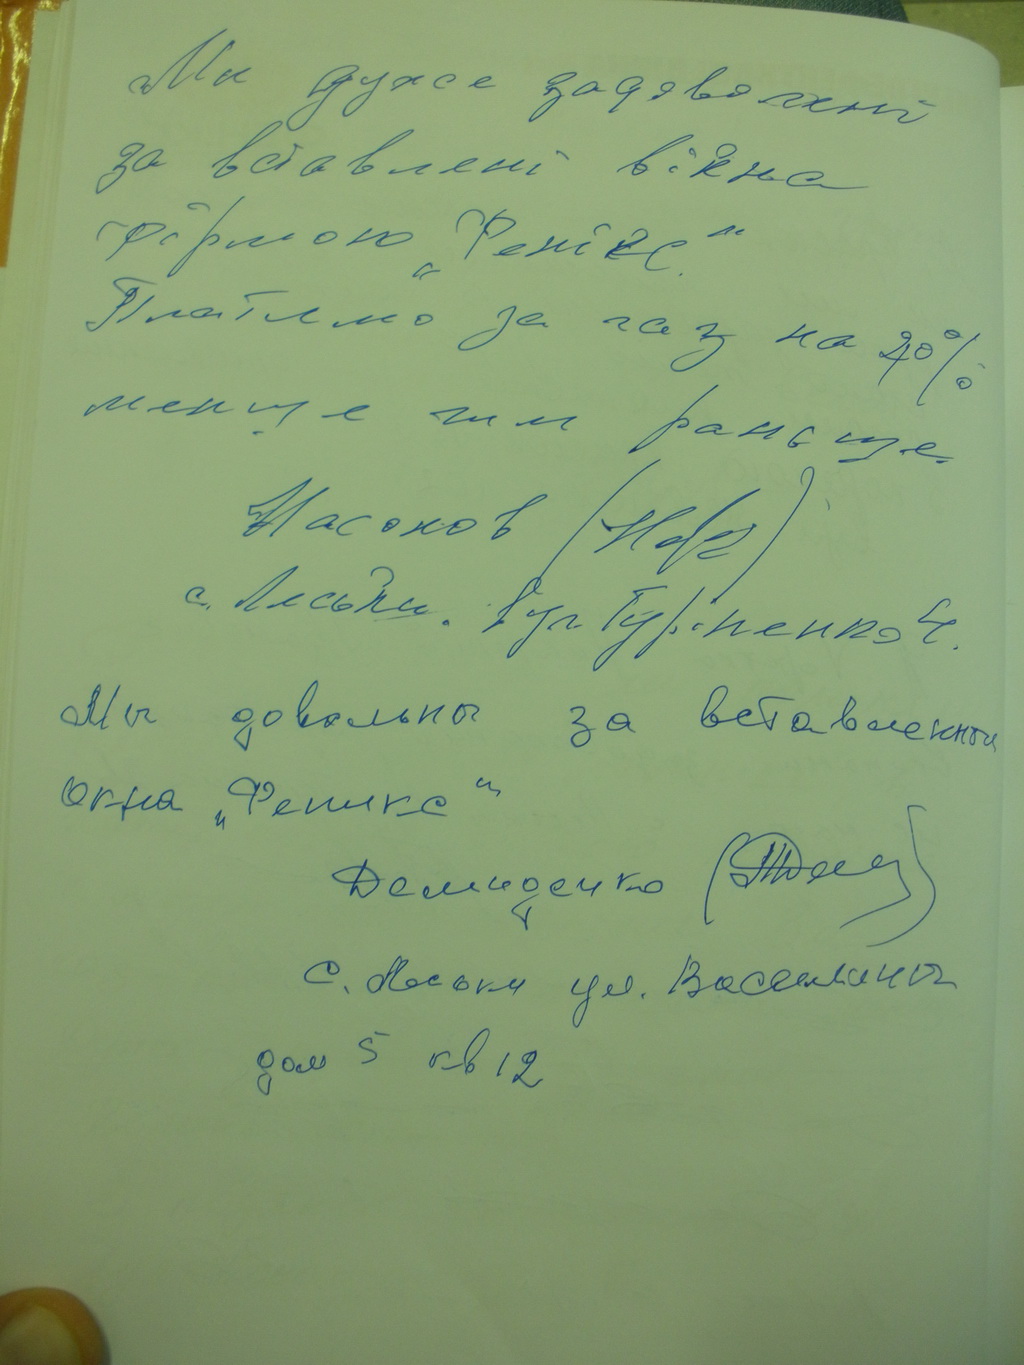 Ми дуже задоволені
за вставлені вікна
фірмою „Фенікс."
Платимо за газ на 20%
менше чим раньше
Насонов
с. Леськи. вул Гуріненко 4.
Мы довольны за вставленные
окна „Феникс"
Демиденко
с. Леськи ул. Василины
дом 5 кв 12